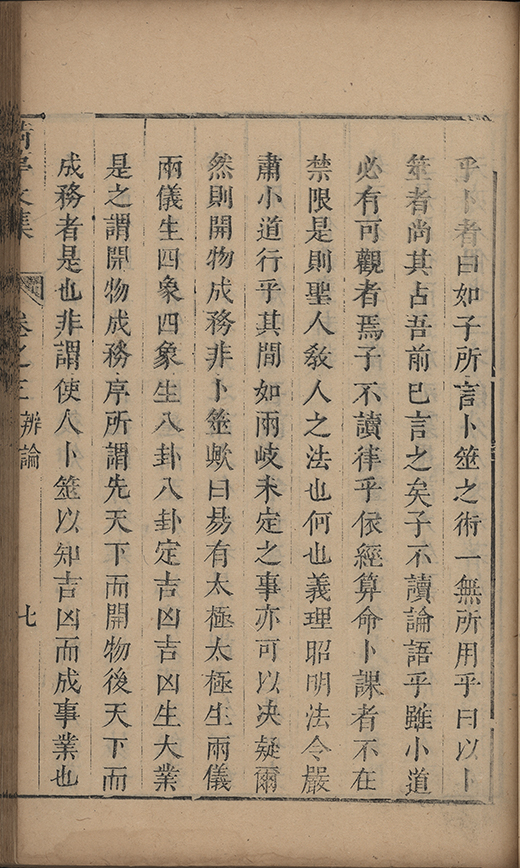 乎卜者曰如子所言卜筮之術一無所用乎曰以卜
筮者尚其占吾前已言之矣子不讀論語乎雖小道
必有可觀者焉子不讀律乎依經算命卜課者不在
禁限是則聖人敎人之法也何也義理昭明法令嚴
肅小道行乎其間如兩岐未定之事亦可以决疑爾
然則開物成務非卜筮歟曰易有太極太極生兩儀
兩儀生四象四象生八卦八卦定吉凶吉凶生大業
是之謂開物成務序所謂先天下而開物後天下而
成務者是也非謂使人卜筮以知吉凶而成事業也
文集 卷之三 辨論 七